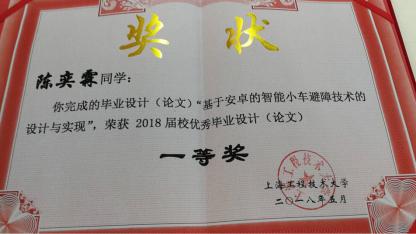 奖状
陈奕霖同学：
你完成的毕业设计（论文）“基于安卓的智能小车避障技术的
设计与实现”，荣获 2018 届校优秀毕业设计（论文）
一等奖
上海工程技术大学
二〇一八年五月